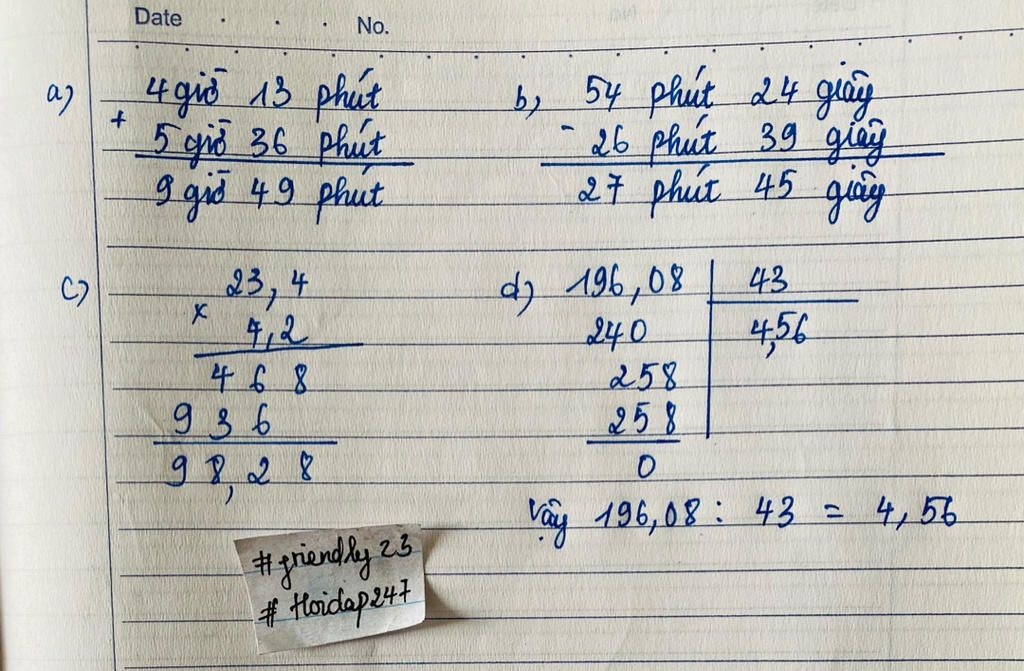 Date No.
a) 4 giờ 13 phút
+ 5 giờ 36 phút
9 giờ 49 phút
b) 54 phút 24 giây
- 26 phút 39 giây
27 phút 45 giây
c) 23,4
x 4,2
4 6 8
9 3 6
9 8,2 8
d) 196,08 43
240 4,56
258
258
0
Vậy 196,08 : 43 = 4,56
#friendly23
# Hoidap247